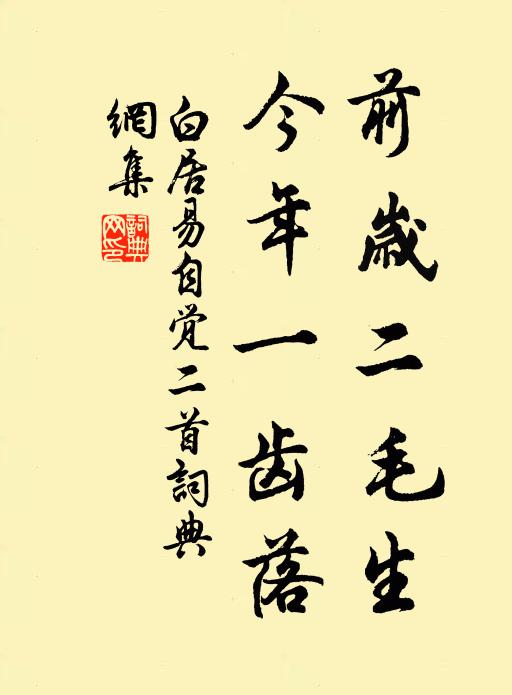 前歳二毛生
今年一齿落
白居易自觉二首詞典
網集
詞典
网印